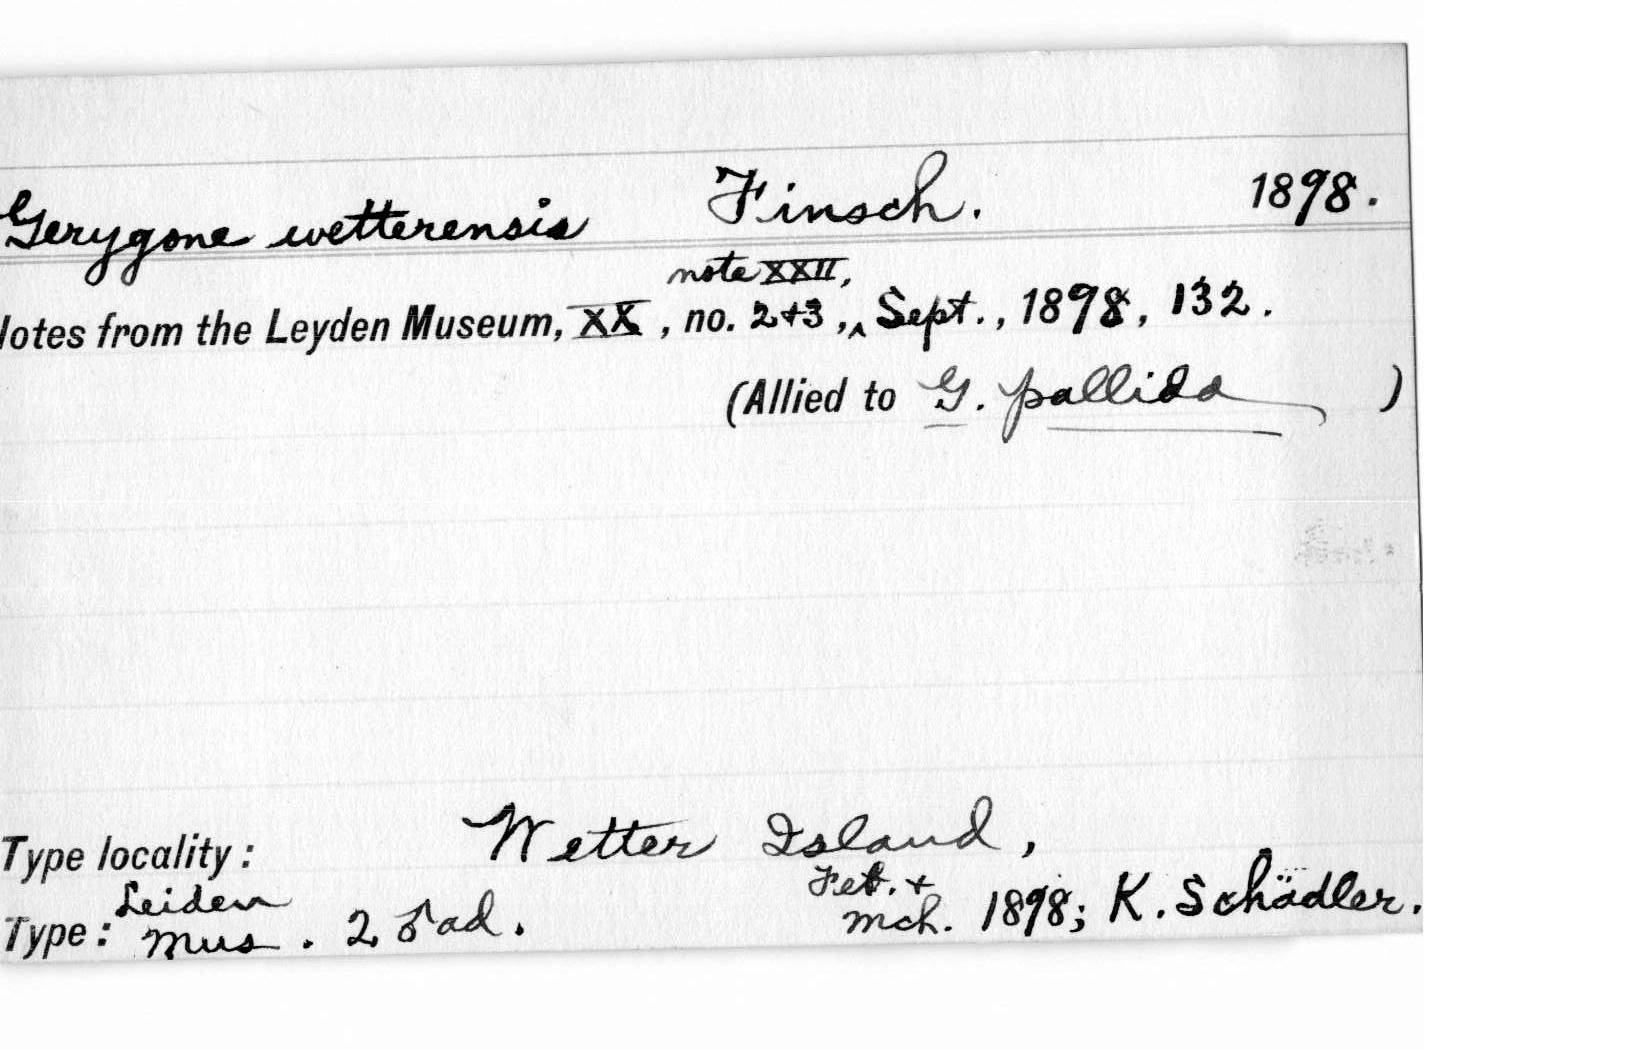 Gerygone wetterensis Finsch. 1898.
note XXII,
Notes from the Leyden Museum, XX, no. 2+3,^ Sept., 1898, 132.
(Allied to G. pallida)
Type locality: Wetter Island,
Leiden Feb. +
Type: Mus. 2 ♂ ad. Mch. 1898; K. Schädler.